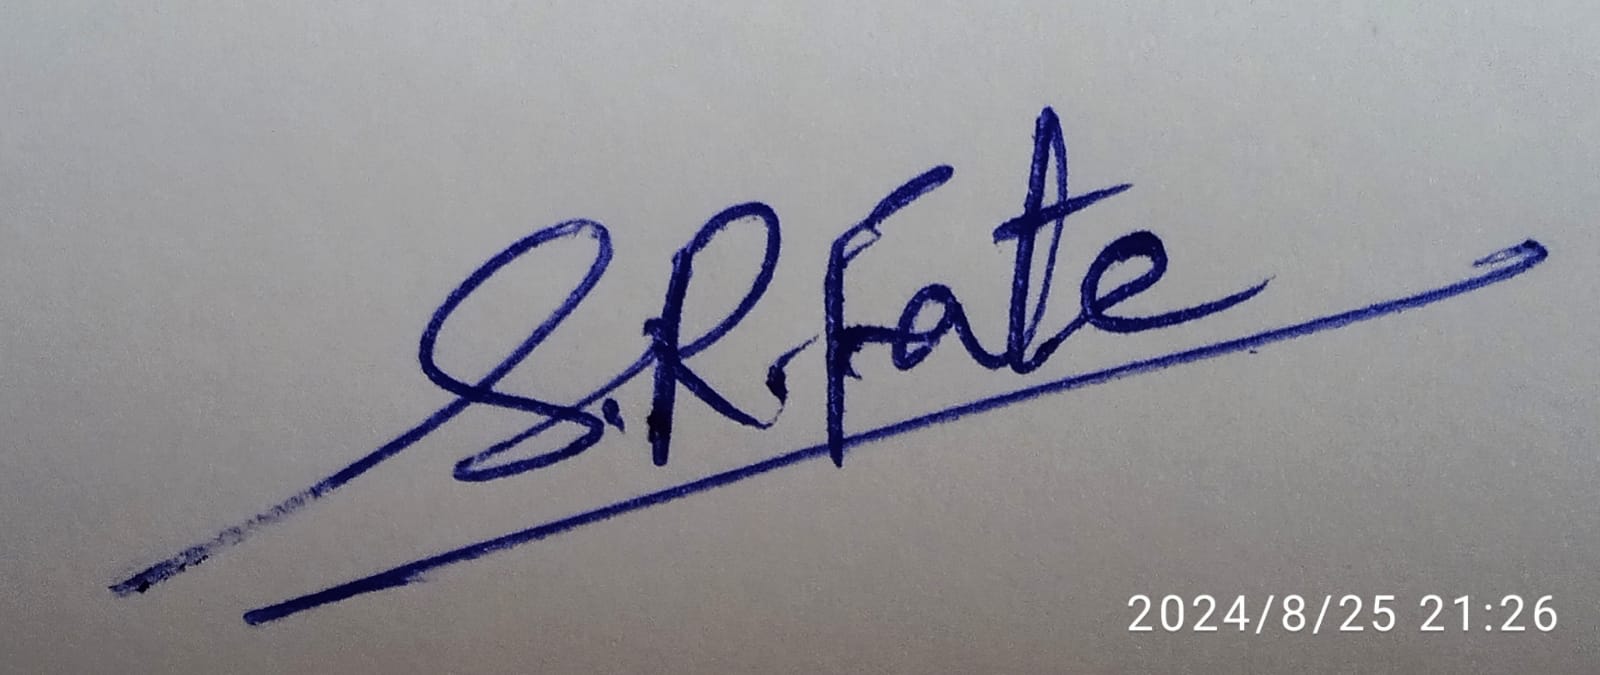 S.R.Fate
2024/8/25 21:26